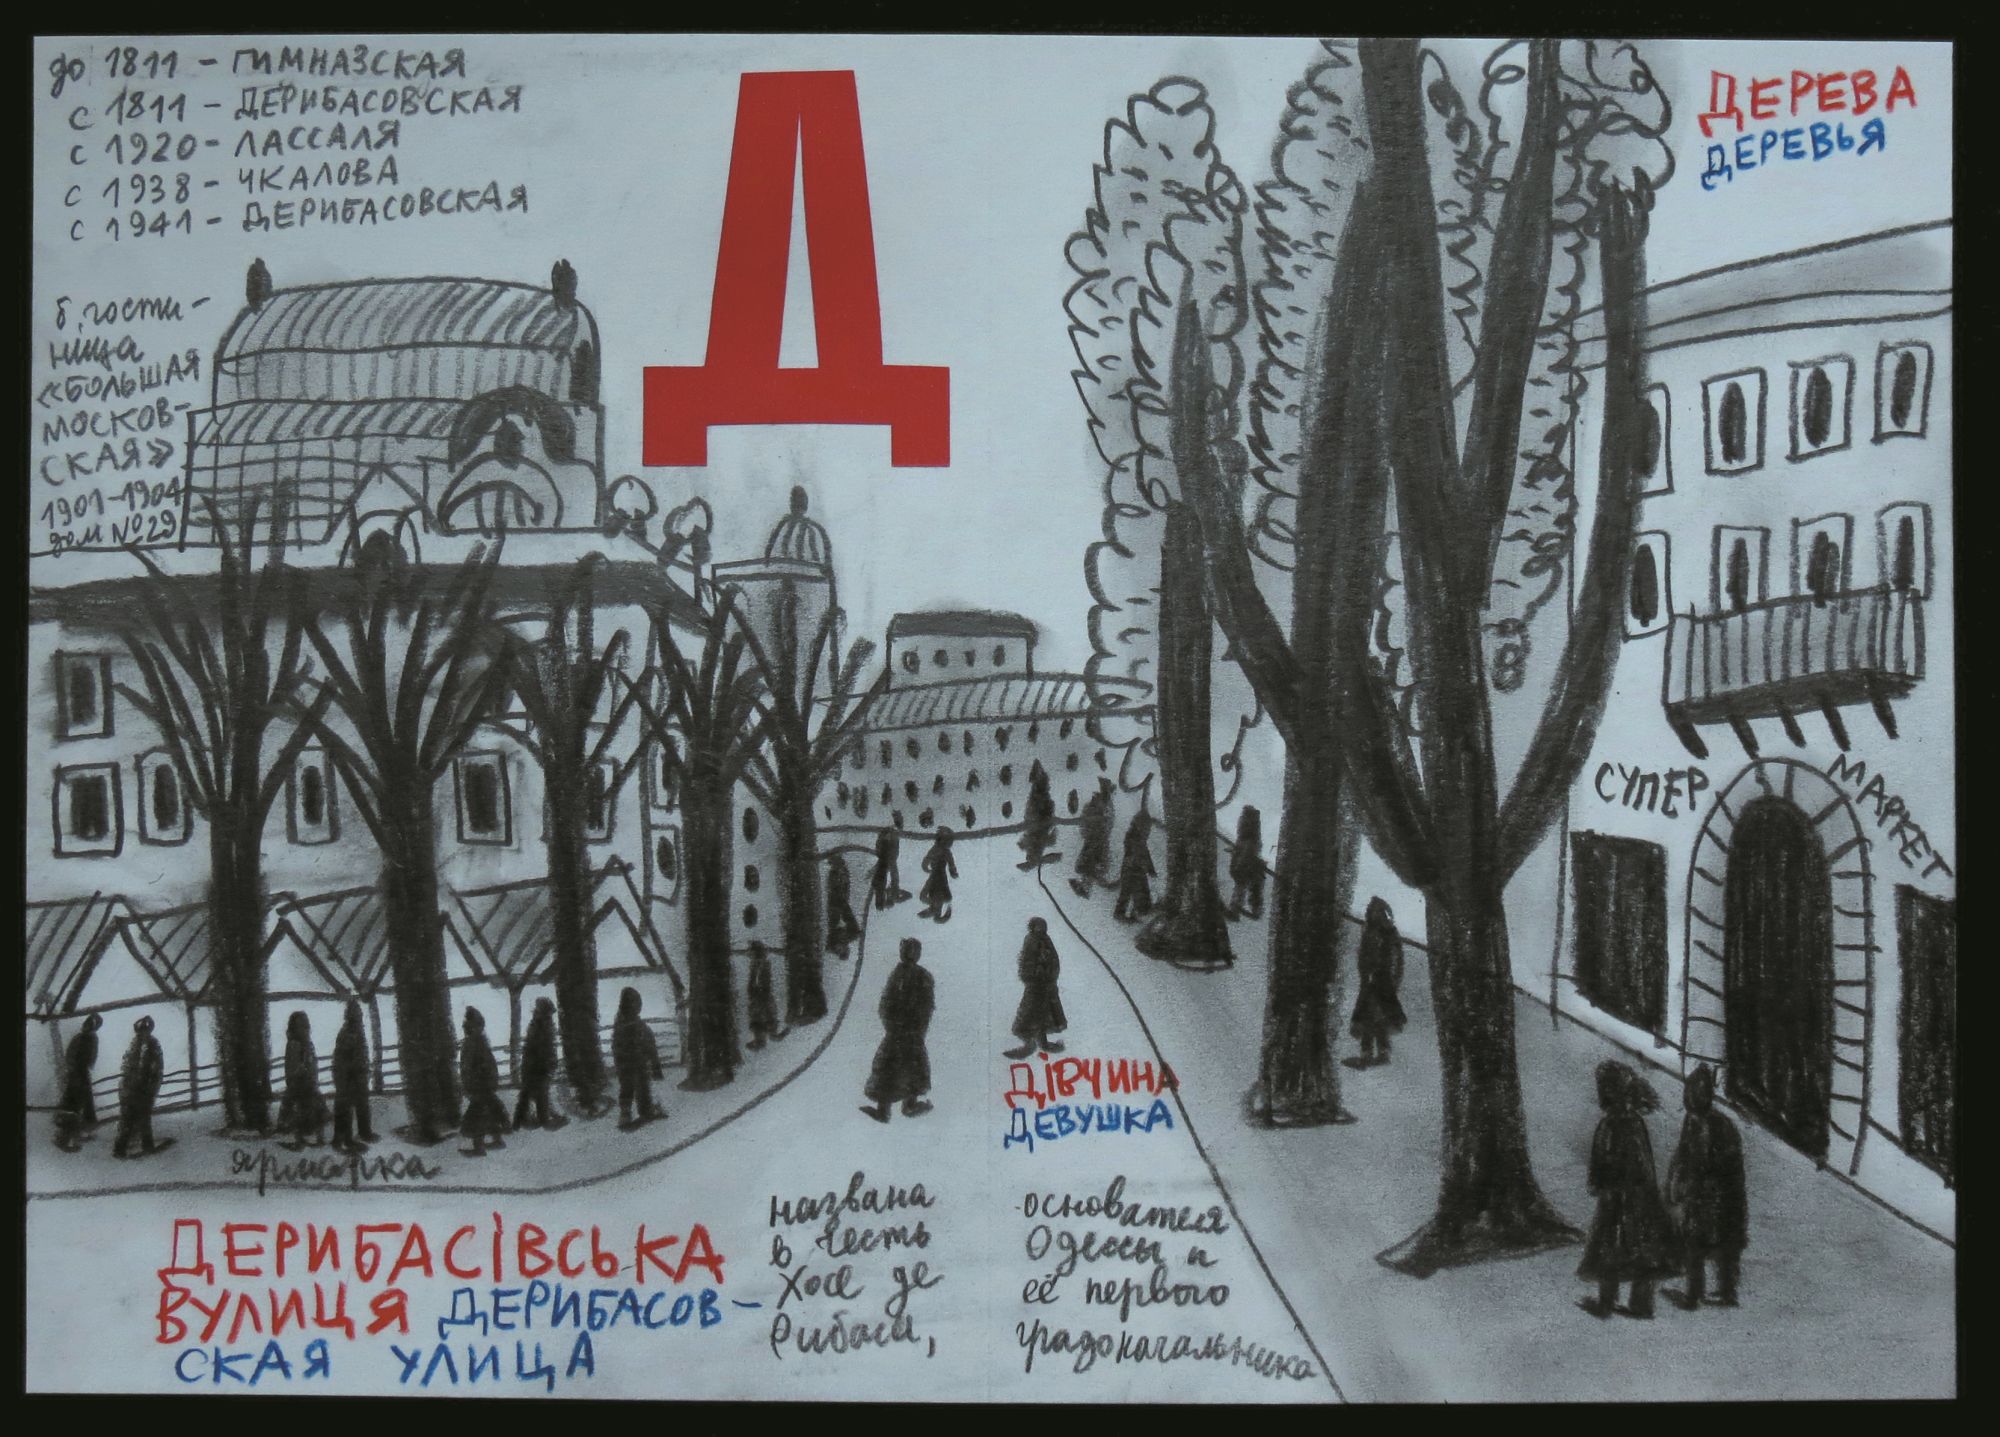 до 1811 - ГИМНАЗСКАЯ
с 1811 - ДЕРИБАСОВСКАЯ
с 1920 - ЛАССАЛЯ
с 1938 - ЧКАЛОВА
с 1941 - ДЕРИБАСОВСКАЯ
б. гости-
ница
«БОЛЬШАЯ
МОСКОВ-
СКАЯ»
1901-1904
дом №29
Д
ДЕРЕВА
ДЕРЕВЬЯ
СУПЕР МАРКЕТ
ДІВЧИНА
ДЕВУШКА
ярмарка
ДЕРИБАСІВСЬКА
ВУЛИЦЯ ДЕРИБАСОВ-
СКАЯ УЛИЦА
названа
в честь
Хосе де
Рибаса,
основателя
Одессы и
её первого
градоначальника